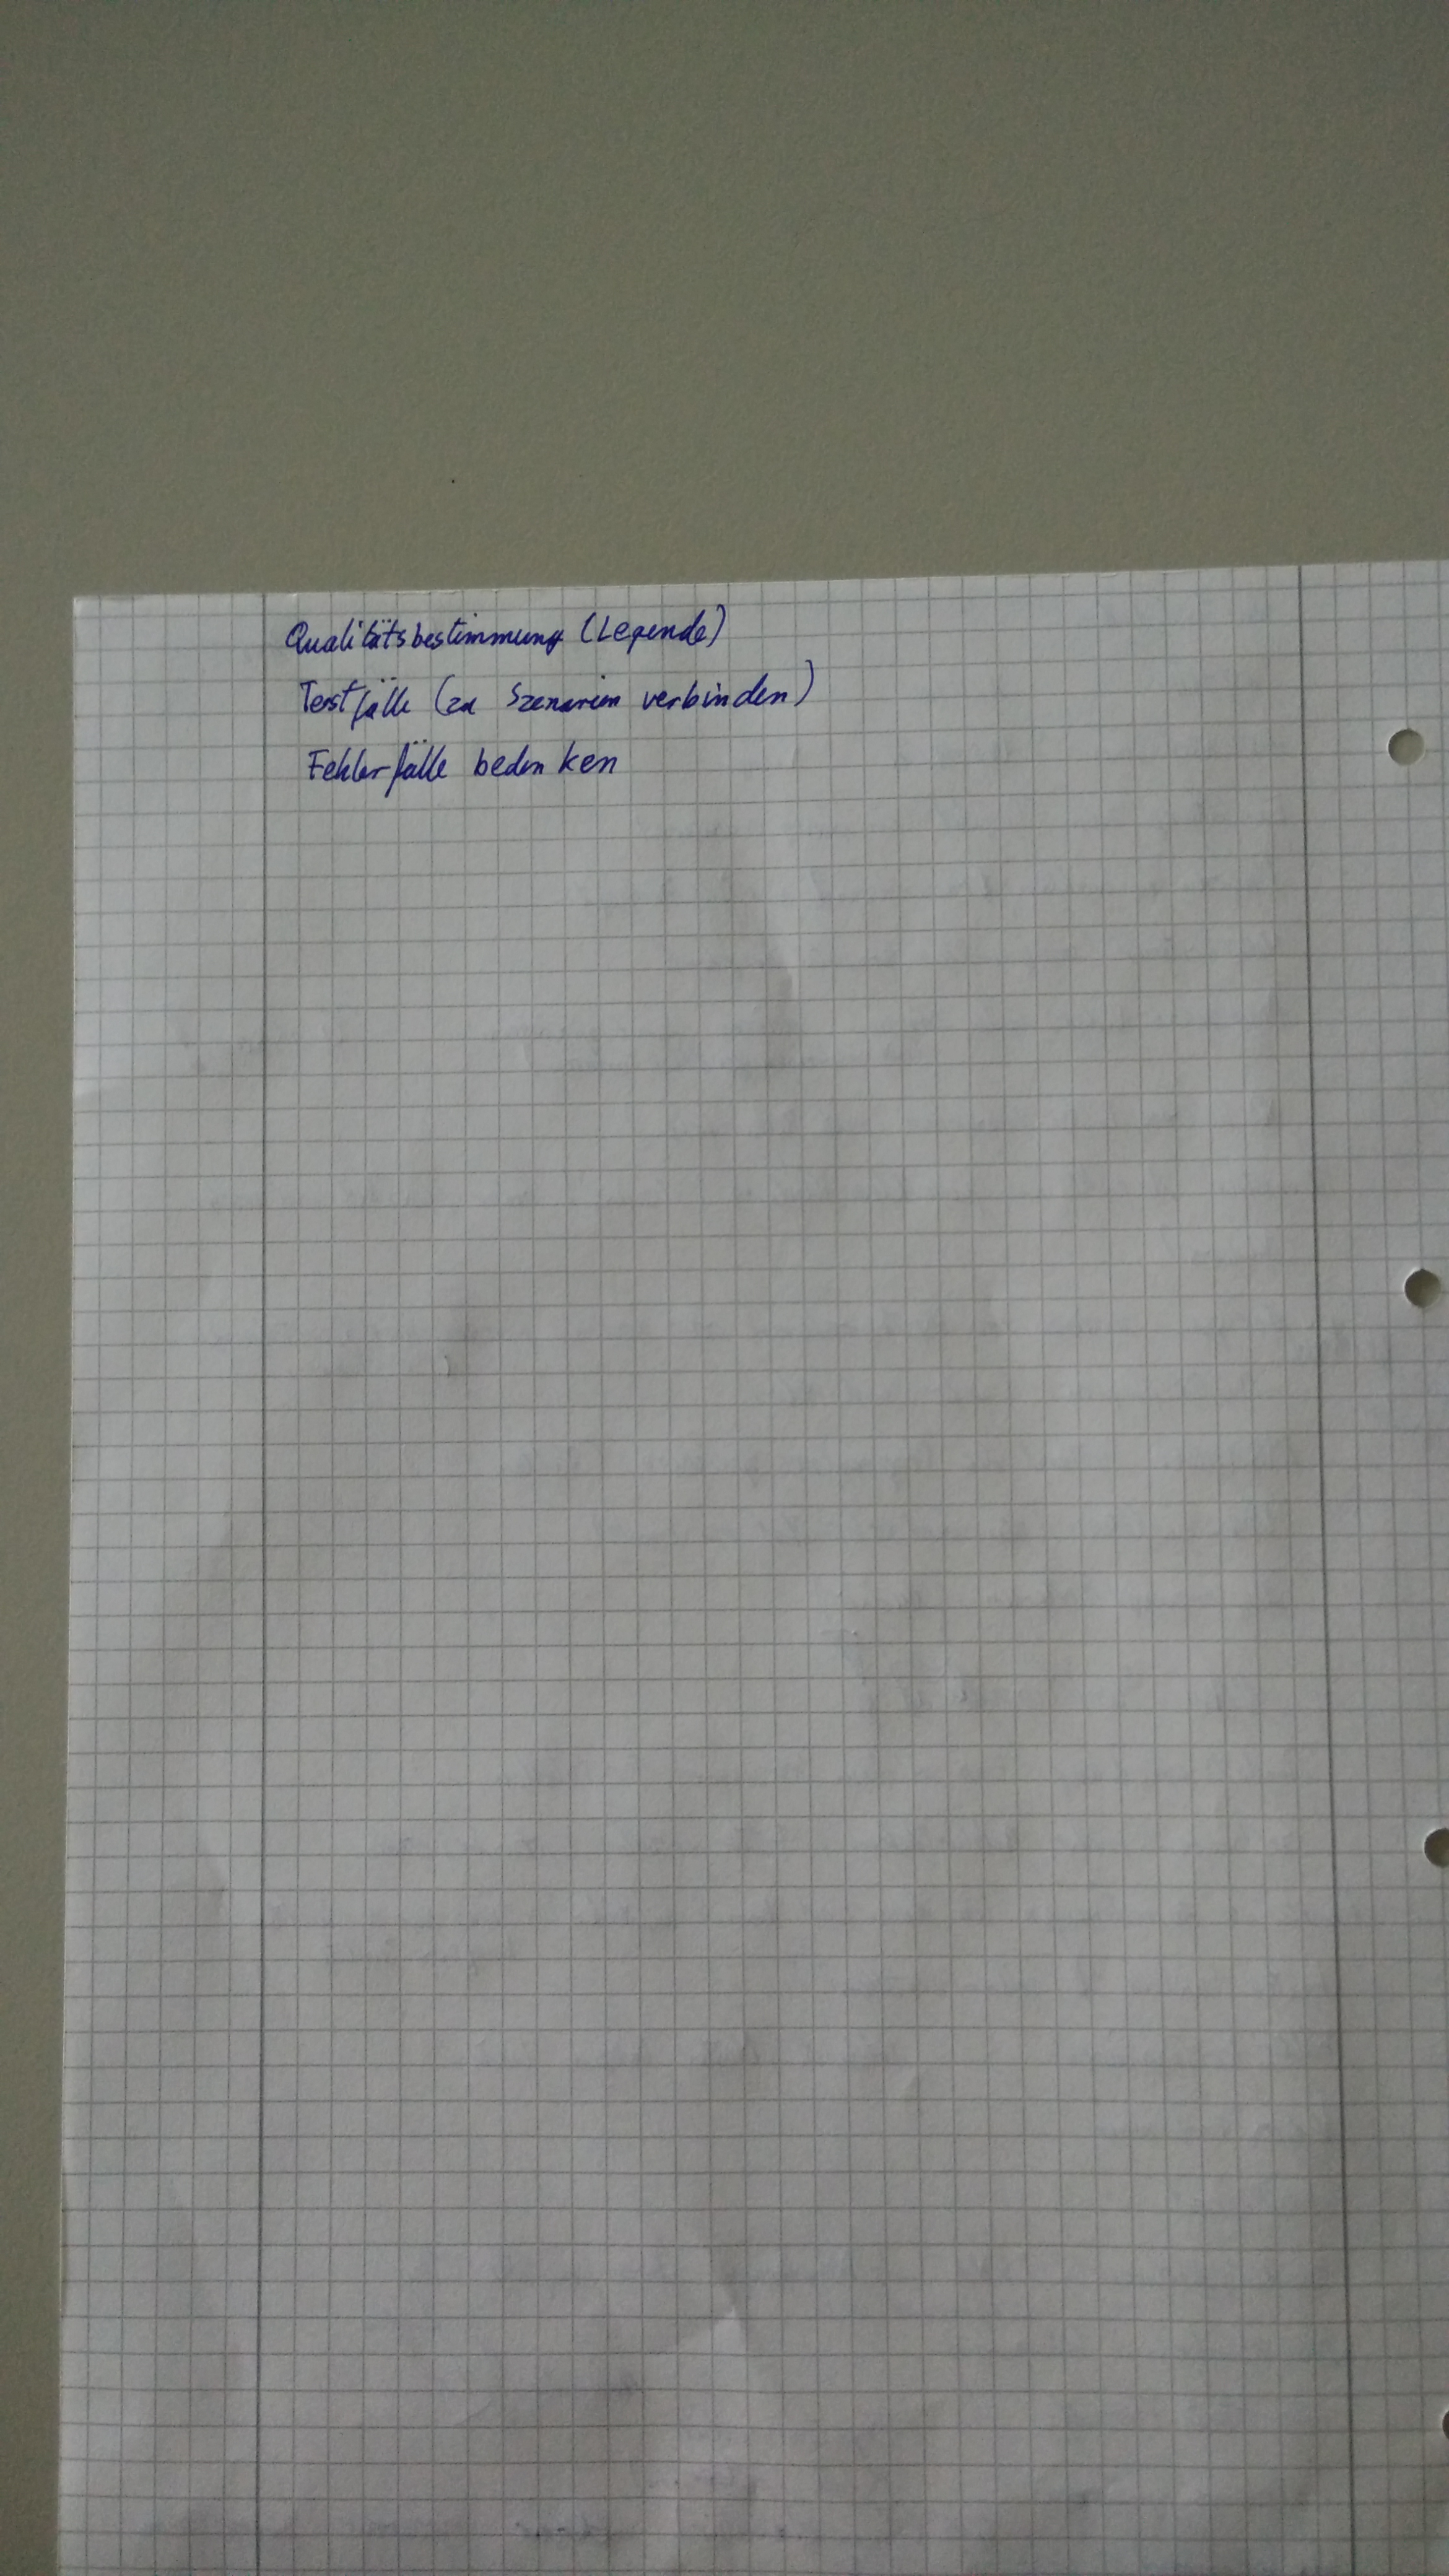 Qualitätsbestimmung (Legende)
Testfälle (zu Szenarien verbinden)
Fehlerfälle bedenken